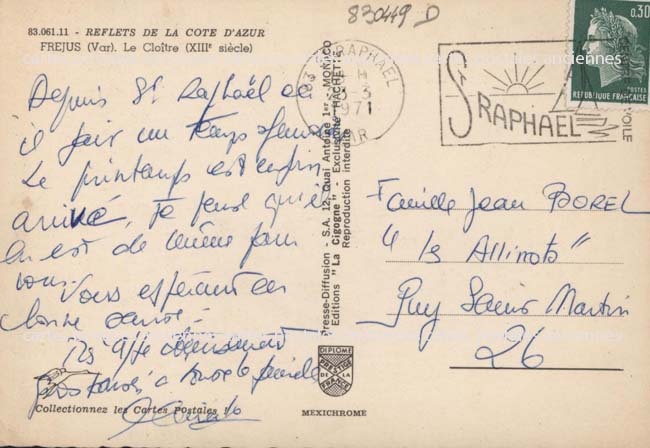 830449 D
83.061.11 - REFLETS DE LA COTE D'AZUR
FREJUS (Var). Le Cloître (XIIIe siècle)
Depuis St Raphaël où
il fait un temps
Le printemps est enfin
arrivé, Je pense qu'il
en est de même pour
vous.
Vous espérant en
bonne santé.
à toute la famille
Collectionnez les Cartes Postales !
Presse-Diffusion - S.A. 12, Quai Antoine 1er - MONACO
Editions "La Cigogne". Exclusivité HACHETTE
Reproduction interdite
DIPLOME
PRESTIGE
DE LA
FRANCE
MEXICHROME
83 ST RAPHAEL
1971
VAR
ST RAPHAEL
VOILE
0.30
POSTES
REPUBLIQUE FRANCAISE
Famille Jean BOREL
"les Allirots"
Puy Saint Martin
26